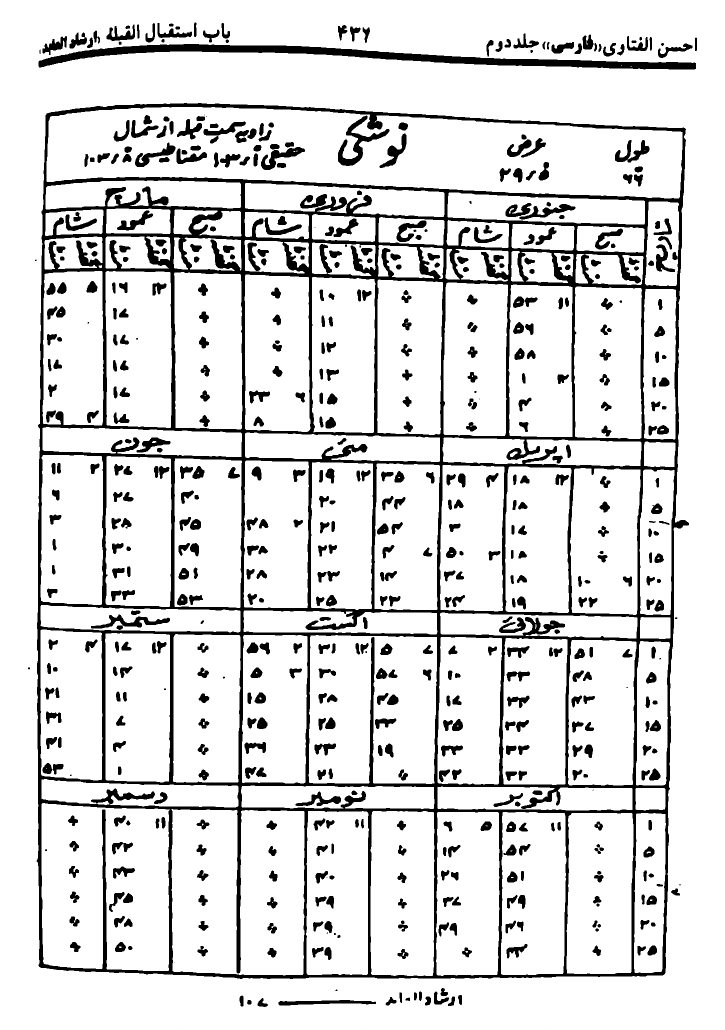 احسن الفتاوی «فارسی» جلد دوم ۴۳۶ باب استقبال القبلة «ارشاد العابد»
طول عرض نوشکی زاویہ سمت قبلہ از شمال
۶۶ ۲۹٫۵ حقیقی ۱۰۳٫۱ مقناطیسی ۱۰۳٫۸
تاریخ جنوری فروری مارچ
صبح عمود شام صبح عمود شام صبح عمود شام
گھنٹہ منٹ گھنٹہ منٹ گھنٹہ منٹ گھنٹہ منٹ گھنٹہ منٹ گھنٹہ منٹ گھنٹہ منٹ گھنٹہ منٹ گھنٹہ منٹ
۱ + ۱۱ ۵۳ + + ۱۲ ۱۰ + + ۱۲ ۱۶ ۵ ۵۵
۵ + ۵۶ + + ۱۱ + + ۱۷ ۴۵
۱۰ + ۵۸ + + ۱۲ + + ۱۷ ۳۰
۱۵ + ۱۲ ۱ + + ۱۳ + + ۱۷ ۱۷
۲۰ + ۴ + + ۱۵ ۶ ۲۳ + ۱۷ ۲
۲۵ + ۶ + + ۱۵ ۸ + ۱۷ ۴ ۴۹
اپریل مئی جون
۱ + ۱۲ ۱۸ ۴ ۲۹ ۶ ۳۵ ۱۲ ۱۹ ۳ ۹ ۷ ۳۵ ۱۲ ۲۷ ۲ ۱۱
۵ + ۱۸ ۱۸ ۴۴ ۲۰ ۴۰ ۲۷ ۶
۱۰ + ۱۷ ۳ ۵۴ ۲۱ ۲ ۴۸ ۴۵ ۲۸ ۳
۱۵ + ۱۸ ۳ ۵۰ ۷ ۴ ۲۲ ۳۸ ۴۹ ۳۰ ۱
۲۰ ۶ ۱۰ ۱۸ ۳۷ ۱۴ ۲۳ ۲۸ ۵۱ ۳۱ ۱
۲۵ ۲۲ ۱۹ ۲۴ ۲۳ ۲۵ ۲۰ ۵۳ ۳۳ ۳
جولائی اگست ستمبر
۱ ۷ ۵۱ ۱۲ ۳۴ ۲ ۷ ۷ ۵ ۱۲ ۳۱ ۲ ۵۶ + ۱۲ ۱۷ ۴ ۲
۵ ۴۸ ۳۳ ۱۰ ۶ ۵۷ ۳۰ ۳ ۵ + ۱۴ ۱۰
۱۰ ۴۳ ۳۴ ۱۷ ۴۵ ۲۸ ۱۵ + ۱۱ ۲۱
۱۵ ۳۷ ۳۴ ۲۵ ۳۳ ۲۵ ۲۵ + ۷ ۳۱
۲۰ ۲۹ ۳۳ ۳۳ ۱۹ ۲۳ ۳۶ + ۴ ۴۱
۲۵ ۲۰ ۳۲ ۴۲ + ۲۱ ۴۷ + ۱ ۵۳
اکتوبر نومبر دسمبر
۱ + ۱۱ ۵۷ ۵ ۶ + ۱۱ ۴۲ + + ۱۱ ۴۰ +
۵ + ۵۴ ۱۴ + ۴۱ + + ۴۲ +
۱۰ + ۵۱ ۲۶ + ۴۰ + + ۴۳ +
۱۵ + ۴۹ ۳۷ + ۳۹ + + ۴۵ +
۲۰ + ۴۶ ۴۹ + ۳۹ + + ۴۸ +
۲۵ + ۴۴ + + ۳۹ + + ۵۰ +
ارشاد العابد ——— ۱۰۷